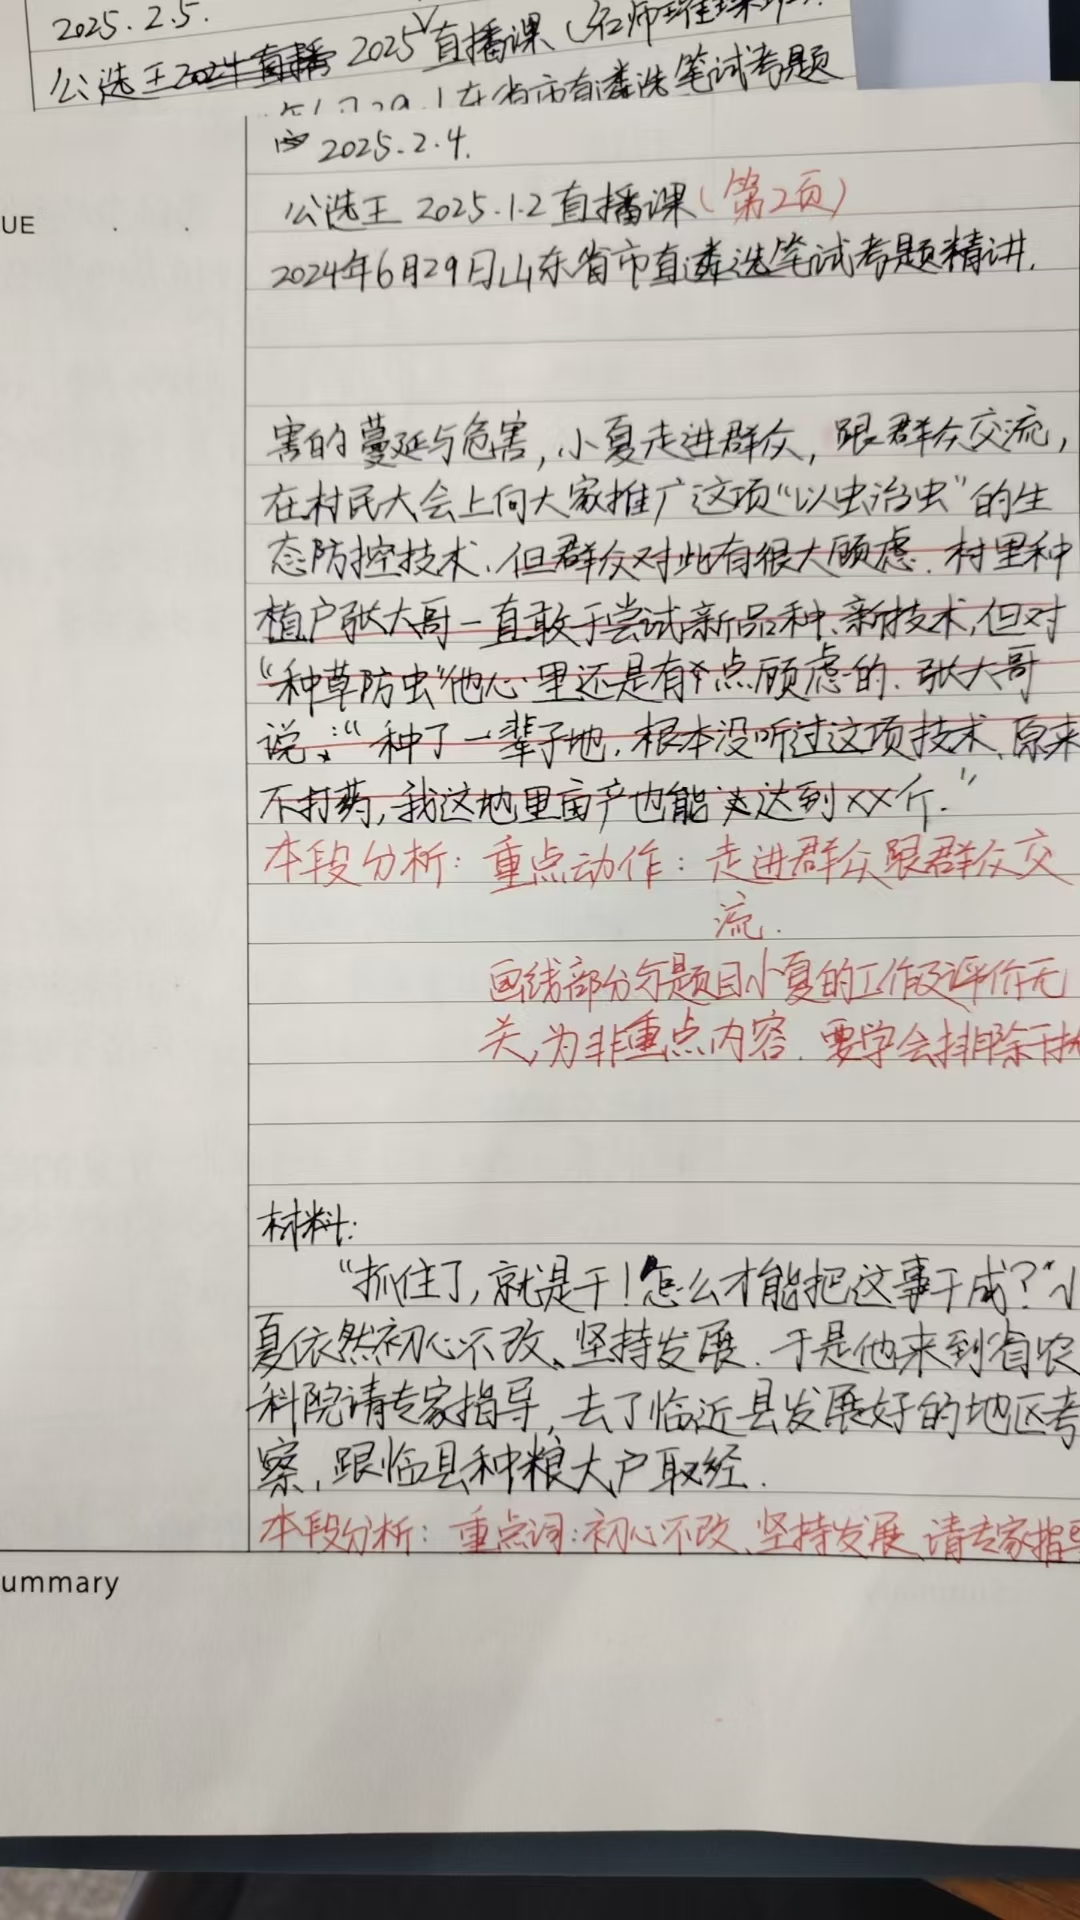 2025.2.5.
公选王2024直播 2025直播课(名师
省市直遴选笔试考题
2025.2.4.
公选王 2025.1.2直播课(第2页)
UE
2024年6月29日山东省市直遴选笔试考题精讲.
害的蔓延与危害,小夏走进群众,跟群众交流,
在村民大会上向大家推广这项“以虫治虫”的生
态防控技术.但群众对此有很大顾虑.村里种
植户张大哥一直敢于尝试新品种、新技术,但对
“种草防虫”他心里还是有点顾虑的.张大哥
说:“种了一辈子地,根本没听过这项技术、原来
不打药,我这地里亩产也能达到XX斤.”
本段分析:重点动作:走进群众跟群众交
流.
画线部分与题目小夏的工作及评价无
关,为非重点内容.要学会排除干扰
材料:
“抓住了,就是干!怎么才能把这事干成?”小
夏依然初心不改、坚持发展.于是他来到省农
科院请专家指导,去了临近县发展好的地区考
察,跟临县种粮大户取经.
本段分析:重点词:初心不改、坚持发展、请专家指导
ummary